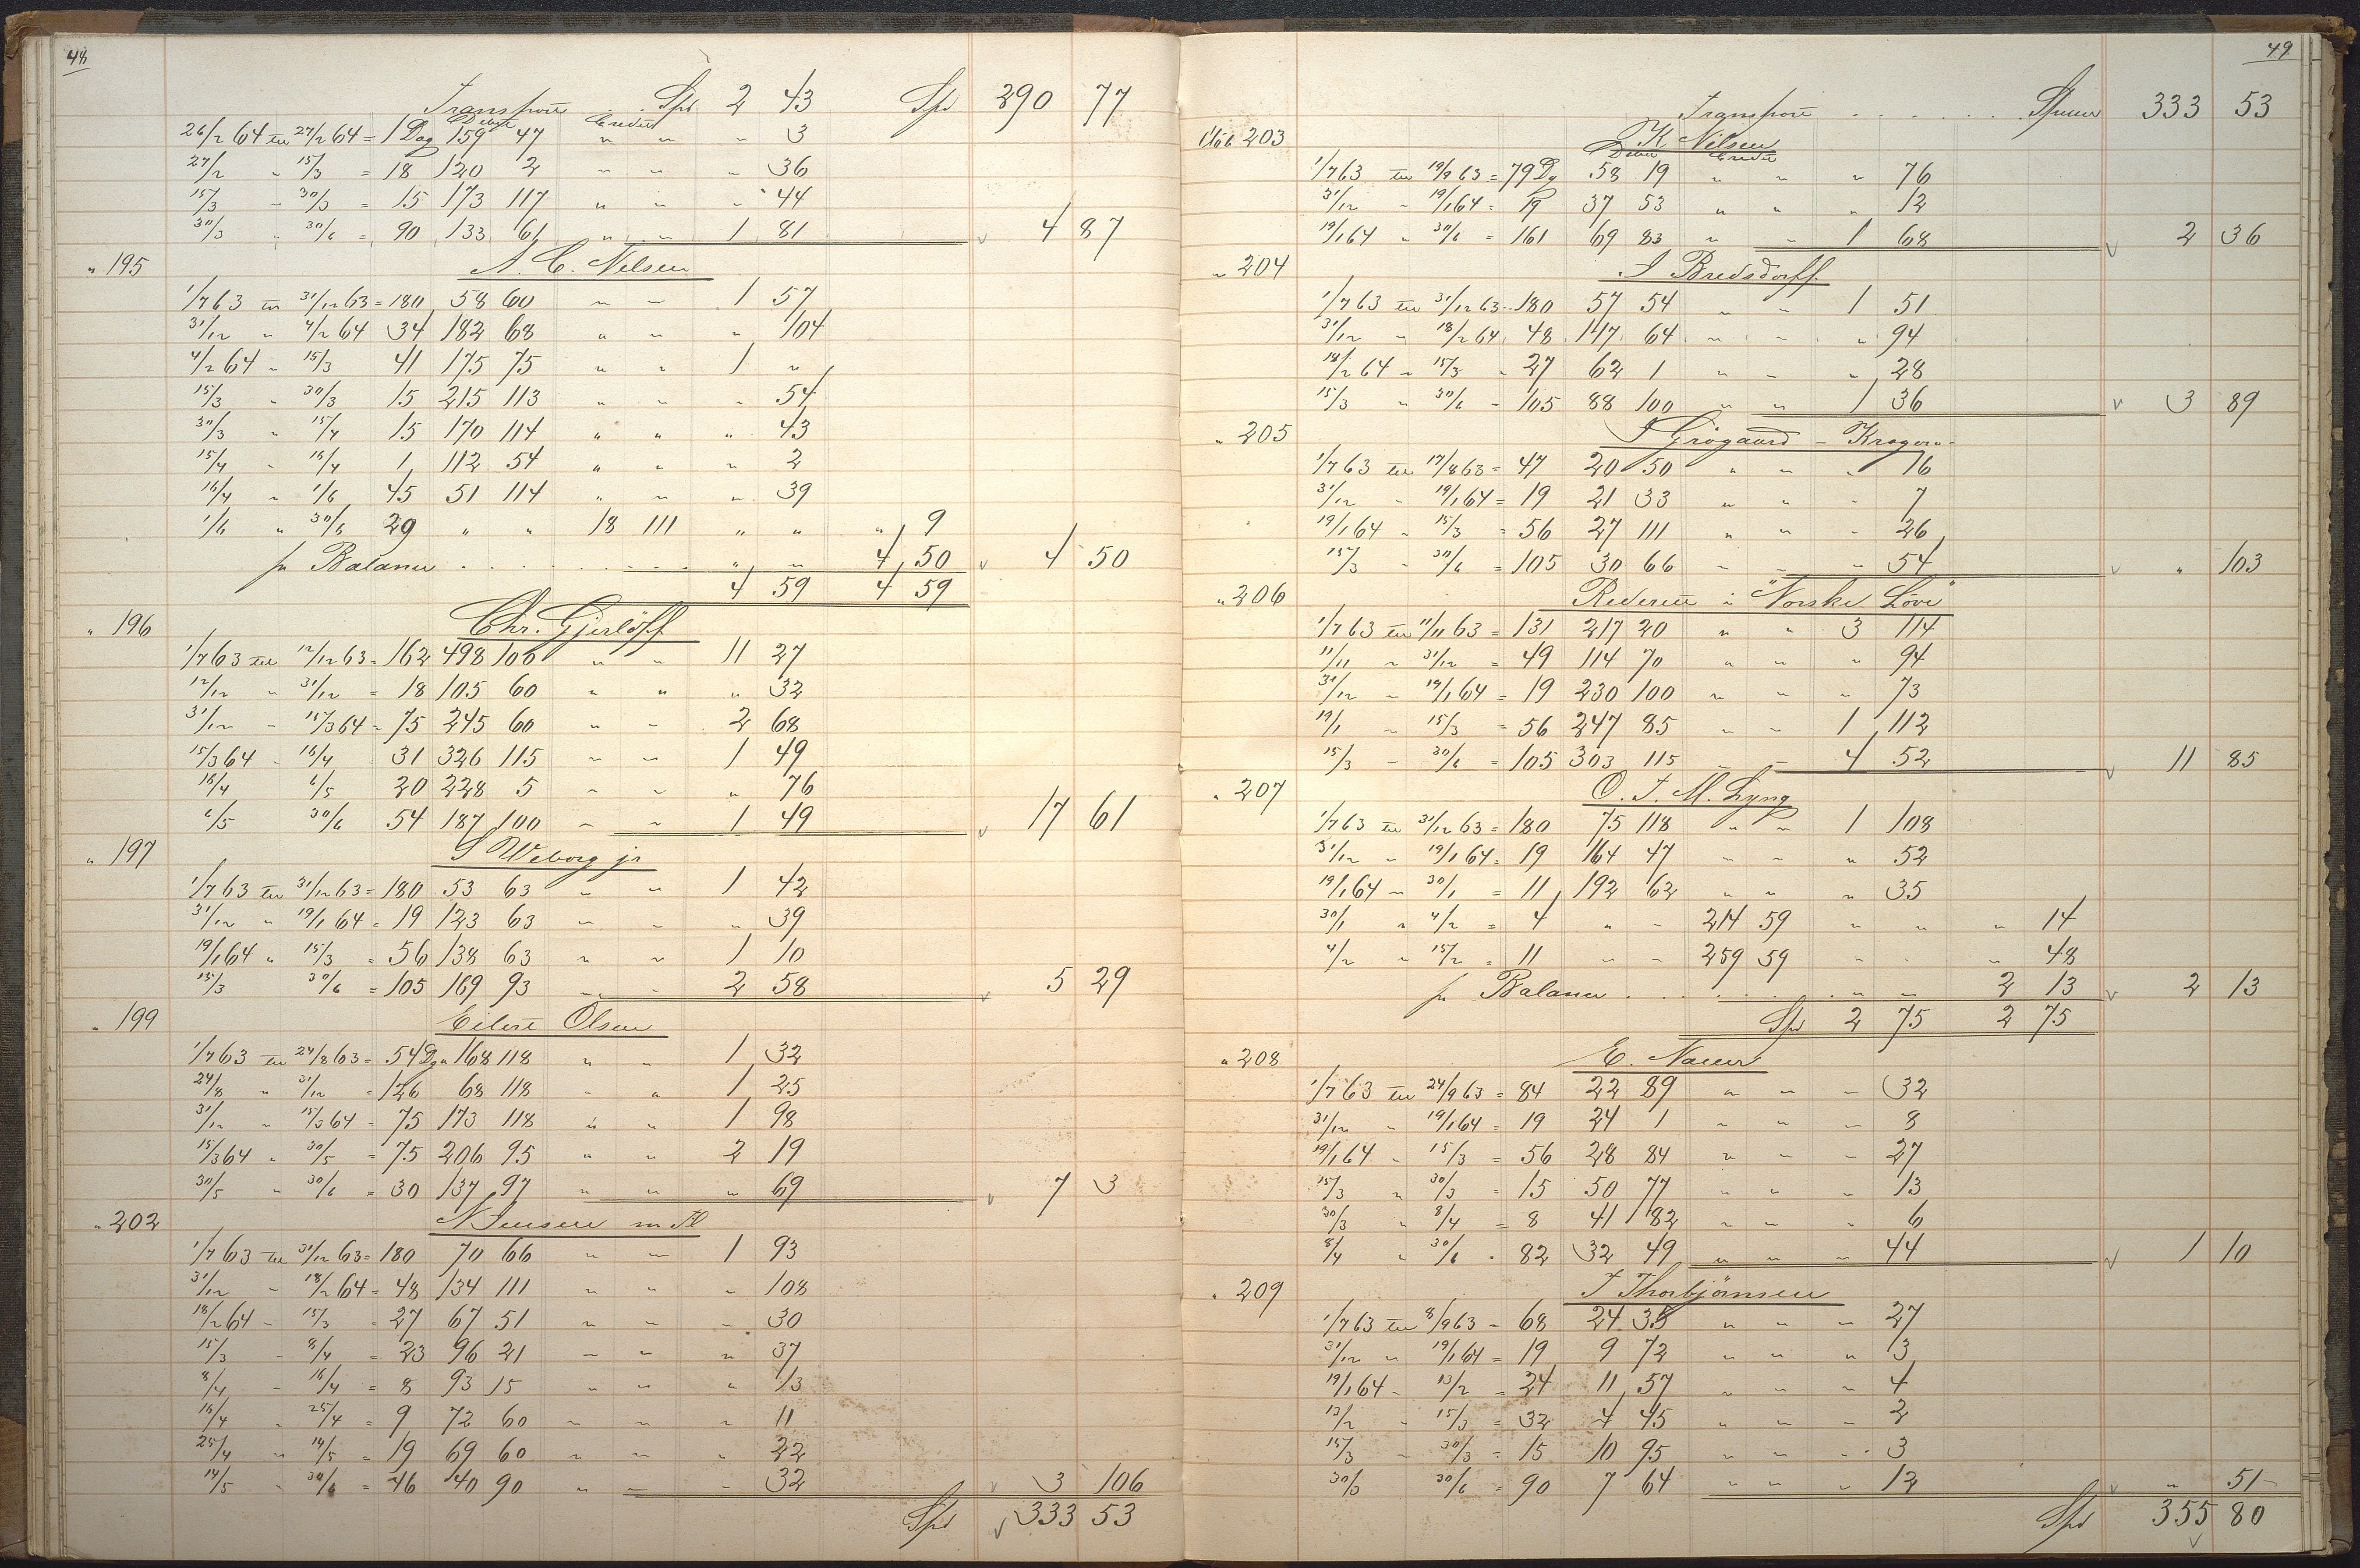 48
Transport . . Spd 2 43 Spd 290 77
Debet Credit
26/2 64 til 27/2 64 = 1 Dag 159 47 " " " 3
27/2 " 15/3 = 18 120 2 " " " 36
15/3 " 30/3 = 15 173 117 " " " 44
30/3 " 30/6 = 90 133 61 " " 1 81 4 87
" 195 A. C. Nilsen
1/7 63 til 31/12 63 = 180 58 60 " " 1 57
31/12 " 4/2 64 34 182 68 " " " 104
4/2 64 " 15/3 41 175 75 " " 1 "
15/3 " 30/3 15 215 113 " " " 54
30/3 " 15/4 15 170 114 " " " 43
15/4 " 16/4 1 112 54 " " " 2
16/4 " 1/6 45 51 114 " " " 39
1/6 " 30/6 29 " " 18 111 " " " 9
pr Balance . . . . . . . . . " " 4 50 4 50
4 59 4 59
" 196 Chr. Gjerlöff
1/7 63 til 12/12 63 = 162 498 100 " " 11 27
12/12 " 31/12 = 18 105 60 " " " 32
31/12 " 15/3 64 = 75 245 60 " " 2 68
15/3 64 " 16/4 31 326 115 " " 1 49
16/4 6/5 20 228 5 " " " 76
6/5 30/6 54 187 100 " " 1 49 17 61
" 197 S Weborg jr
1/7 63 til 31/12 63 = 180 53 63 " " 1 42
31/12 " 19/1 64 = 19 123 63 " " " 39
19/1 64 " 15/3 = 56 138 63 " " 1 10
15/3 30/6 = 105 169 93 " " 2 58 5 29
" 199 Eilert Olsen
1/7 63 til 24/8 63 = 54 Dge 168 118 " " 1 32
24/8 " 31/12 = 126 68 118 " " 1 25
31/12 " 15/3 64 = 75 173 118 " " 1 98
15/3 64 " 30/5 = 75 206 95 " " 2 19
30/5 " 30/6 = 30 137 97 " " " 69 7 3
" 202 N Jensen
1/7 63 til 31/12 63 = 180 70 66 " " 1 93
31/12 " 18/2 64 = 48 134 111 " " " 108
18/2 64 " 15/3 = 27 67 51 " " " 30
15/3 " 8/4 = 23 96 21 " " " 37
8/4 " 16/4 = 8 93 15 " " " 13
16/4 " 25/4 = 9 72 60 " " " 11
25/4 " 14/5 = 19 69 60 " " " 22
14/5 " 30/6 = 46 40 90 " " " 32 3 106
Spd 333 53
49
Transport . . . . . . Spd 333 53
203 K Nilsen
Debet Credit
1/7 63 til 19/9 63 = 79 Dg 58 19 " " " 76
31/12 " 19/1 64 = 19 37 53 " " " 12
19/1 64 " 30/6 = 161 69 83 " " 1 68 2 36
" 204 J Bredsdorff
1/7 63 til 31/12 63 = 180 57 54 " " 1 51
31/12 " 18/2 64 48 117 64 " " " 94
18/2 64 " 15/3 " 27 62 1 " " " 28
15/3 " 30/6 = 105 88 100 " " 1 36 3 89
" 205 J Grögaard - Kragerø -
1/7 63 til 17/8 63 = 47 20 50 " " " 16
31/12 " 19/1 64 = 19 21 33 " " " 7
19/1 64 " 15/3 = 56 27 111 " " " 26
15/3 " 30/6 = 105 30 66 " " " 54 " 103
" 206 Rederiet i "Norske Löve"
1/7 63 til 11/11 63 = 131 217 20 " " 3 114
11/11 " 31/12 = 49 114 70 " " " 94
31/12 " 19/1 64 = 19 230 100 " " " 73
19/1 " 15/3 = 56 247 85 " " 1 112
15/3 " 30/6 = 105 303 115 " " 4 52 11 85
" 207 O. J. M. Lyng
1/7 63 til 31/12 63 = 180 75 118 " " 1 108
31/12 " 19/1 64 = 19 164 47 " " " 52
19/1 64 " 30/1 = 11 192 62 " " " 35
30/1 " 4/2 = 4 " " 214 59 " " " 14
4/2 " 15/2 = 11 " " 259 59 " " " 48
pr Balance . . . . . . . . " " 2 13 2 13
Spd 2 75 2 75
" 208 E. Nauer
1/7 63 til 24/9 63 = 84 22 89 " " " 32
31/12 " 19/1 64 = 19 24 1 " " " 8
19/1 64 " 15/3 = 56 28 84 " " " 27
15/3 " 30/3 = 15 50 77 " " " 13
30/3 " 8/4 = 8 41 82 " " " 6
8/4 " 30/6 = 82 32 49 " " " 44 1 10
" 209 J Thorbjörnsen
1/7 63 til 8/9 63 = 68 24 35 " " " 27
31/12 " 19/1 64 = 19 9 72 " " " 3
19/1 64 " 13/2 = 24 11 57 " " " 4
13/2 " 15/3 = 32 4 45 " " " 2
15/3 " 30/3 = 15 10 95 " " " 3
30/3 30/6 = 90 7 64 " " " 12 " 51
Spd 355 80